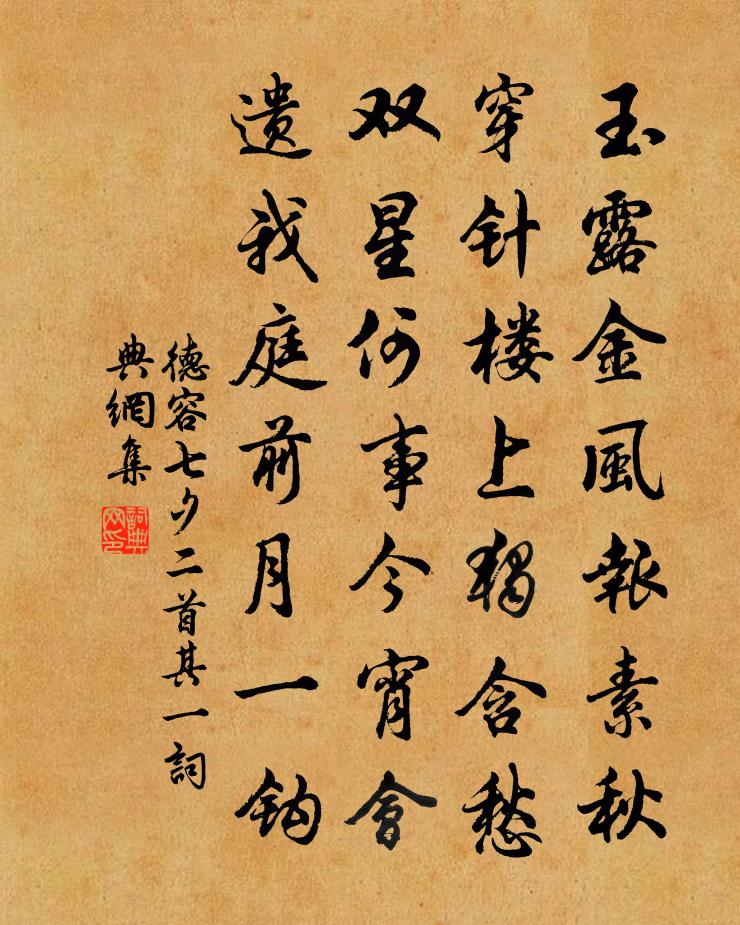 玉露金風報素秋
穿针楼上獨含愁
双星何事今宵會
遺我庭前月一鈎
德容七夕二首其一詞
典網集
詞典網印